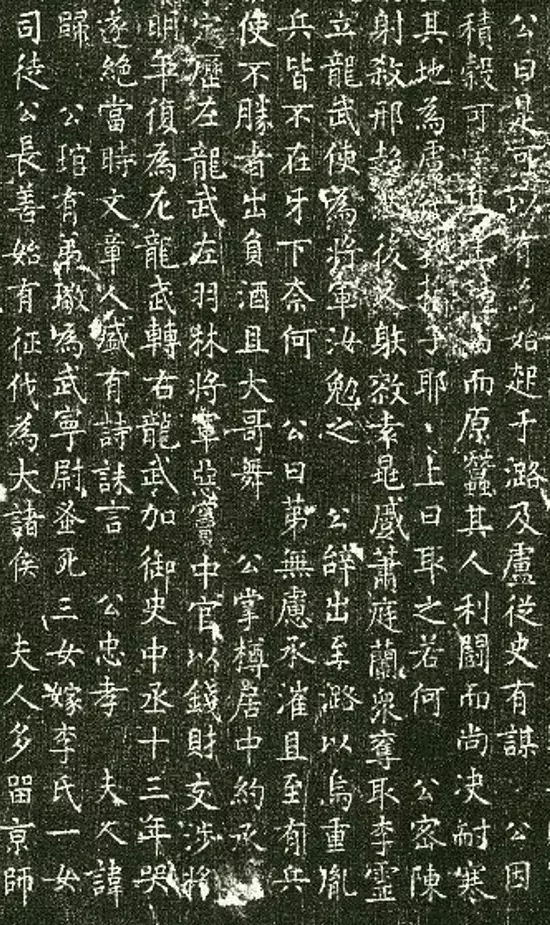 公曰是可以有為始起于潞及盧從史有謀 公因
積穀可 而原蠶其人利鬪而尚决耐寒
其地為 子耶、上曰取之若何 公密陳
射殺邢 後又射殺袁晁感蕭庭蘭衆奪取李霊
立龍武使為將軍汝勉之 公辤出至潞以烏重胤
兵皆不在牙下奈何 公曰苐無慮承漼且至有兵
使不勝者出負酒且大哥舞 公掌樽居中約承
定歷左龍武左羽林將軍惡竇中官以錢財交涉將
明年復為左龍武轉右龍武加御史中丞十三年哭
遂絶當時文章人盛有詩誄言 公忠孝 夫人諱
歸 公琯有弟璬為武寧尉蚤死三女嫁李氏一女
司徒公長善始有征伐為大諸侯 夫人多留京師